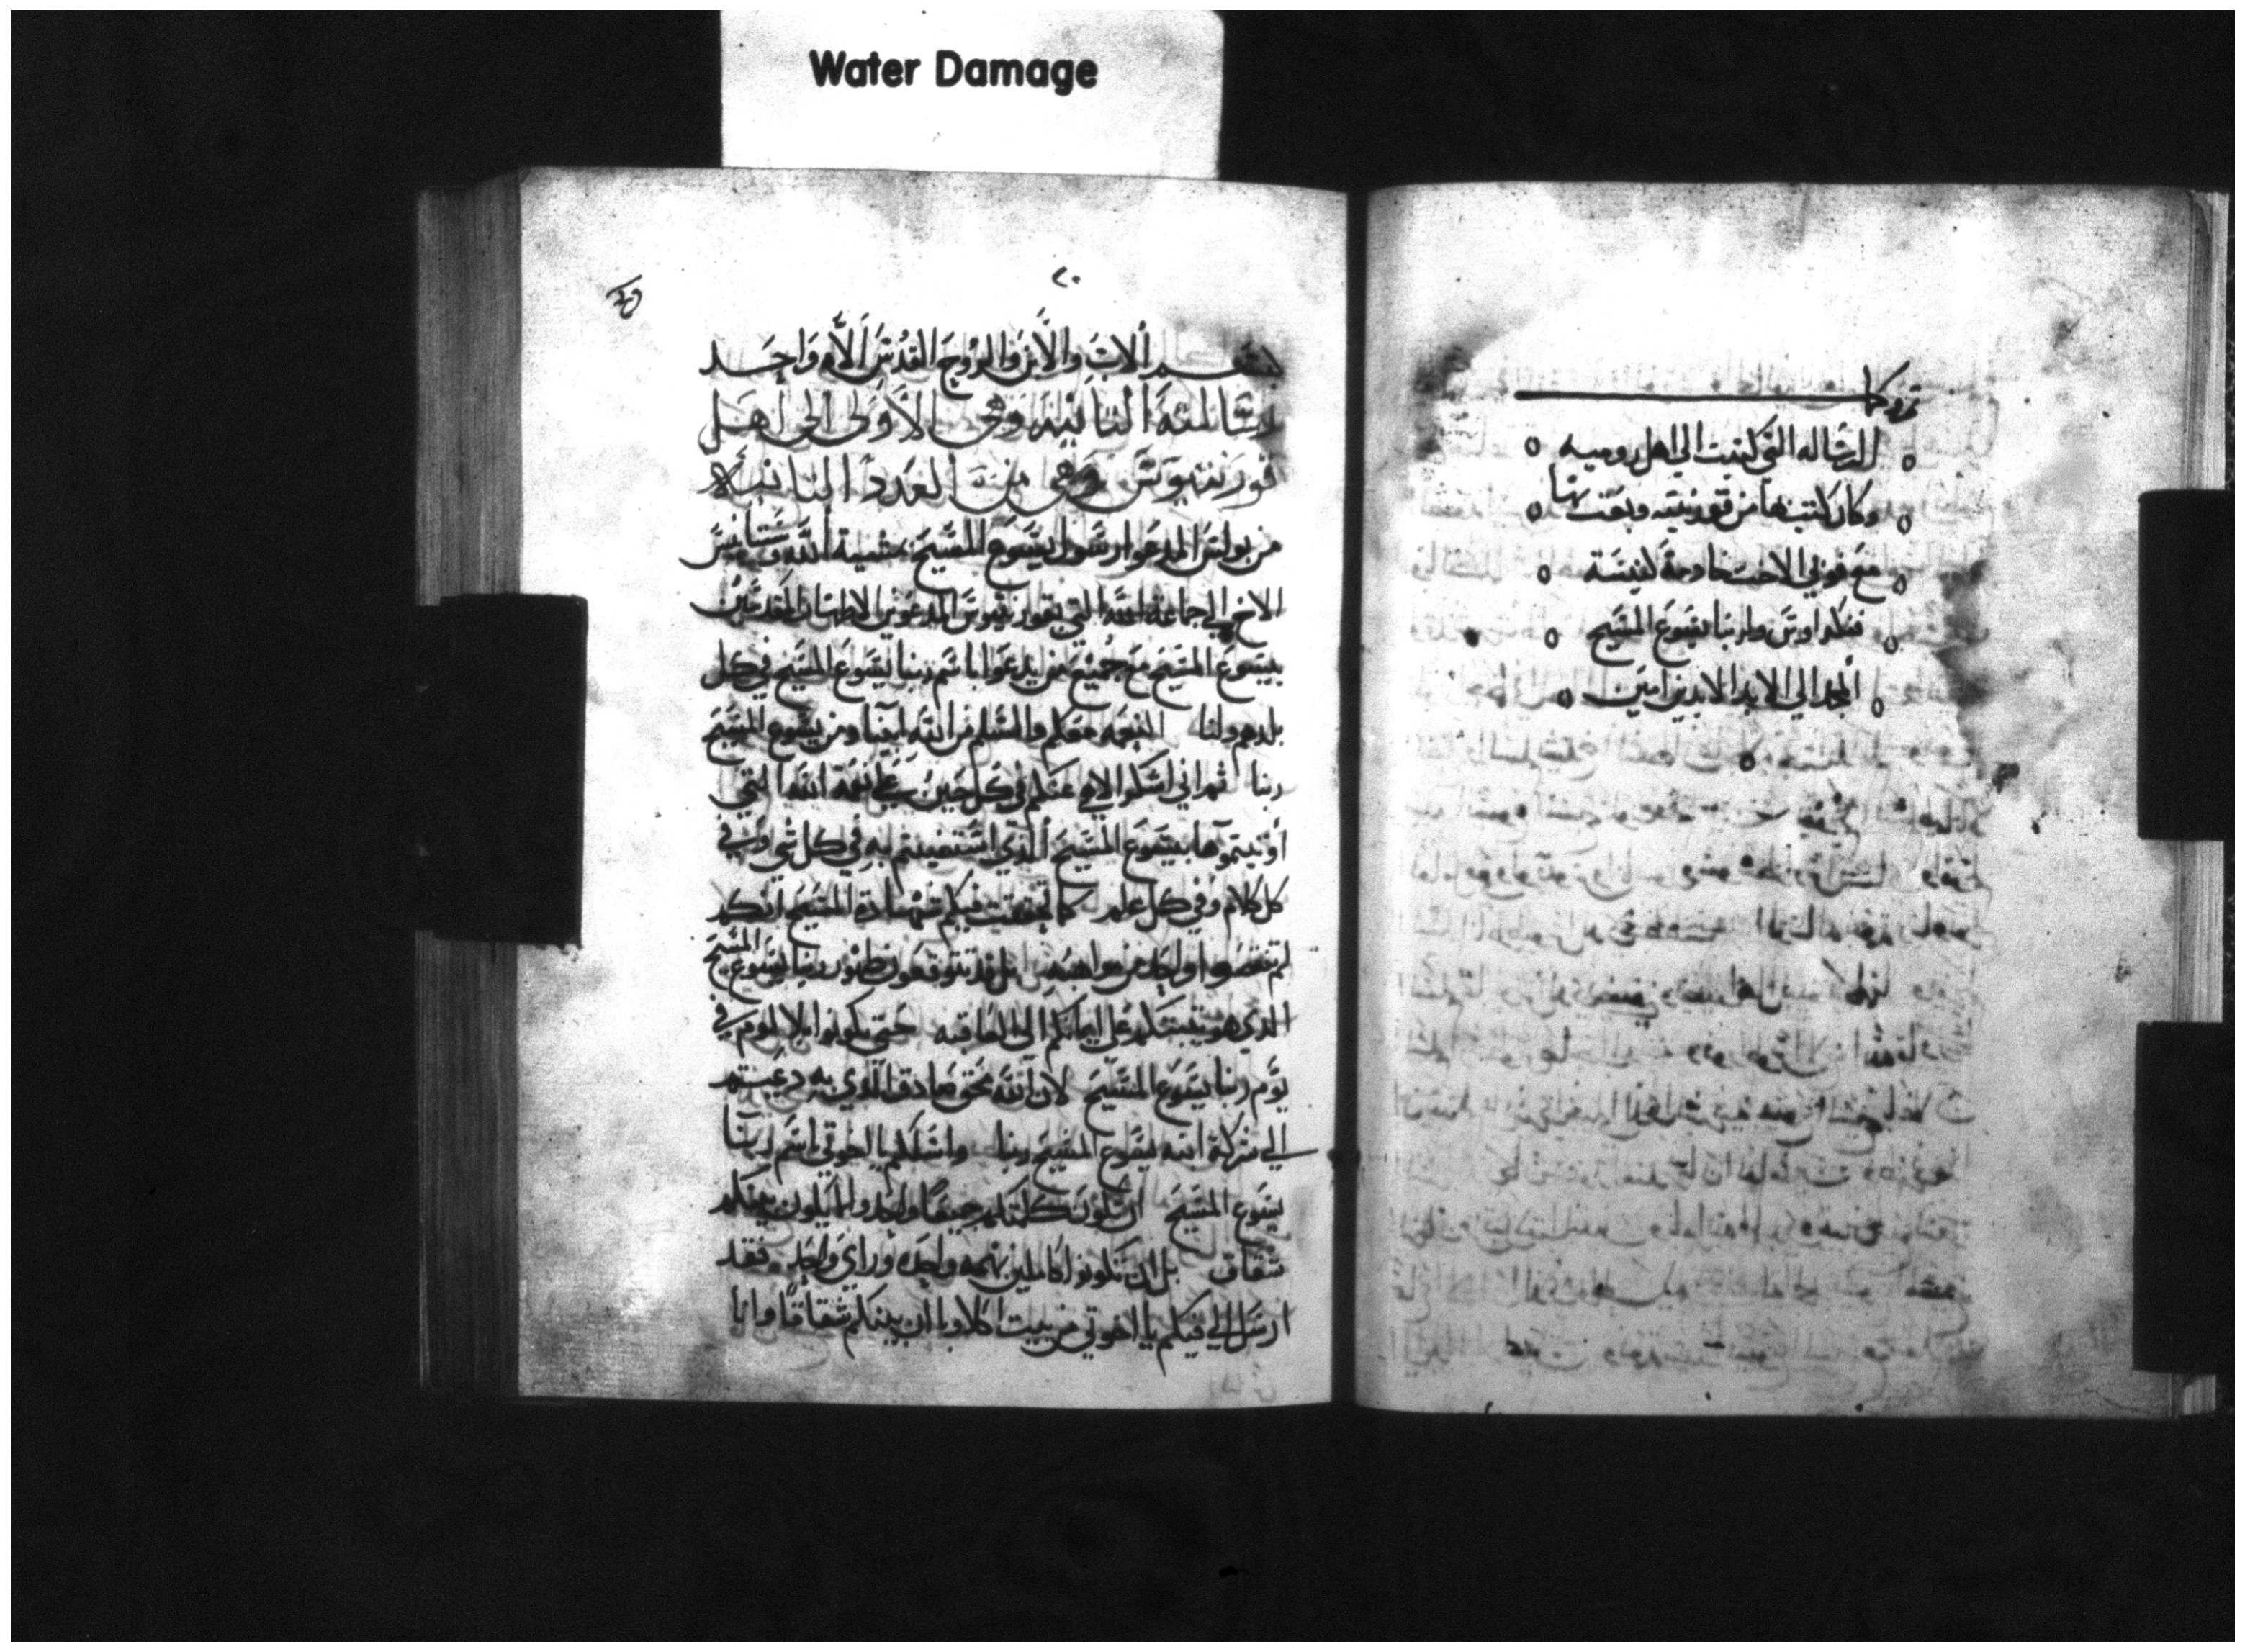 Water Damage
تمت وكملت
الرساله التي كتبت الي اهل روميه
وكان كتب بها من قورنتيه وبعث بها
مع فوبي الاخت خادمة كنيسة
المسيح
المجد الي الابد الابدين امين
٢٠
بسم الاب والابن والروح القدس الاه واحد
رسالته الثانيه وهي الاولى الى اهل
قورنتيوس وهي من العدد الثانيه
من بولس المدعوا رسول يسوع المسيح بمشية الله وسستانيس
الاخ الي جماعة الله التي بقورنتيوس المدعوين الاطهار المقدسين
بيسوع المسيح مع جميع من يدعوا باسم ربنا يسوع المسيح في كل
بلد هم ولنا النعمه معكم والسلم من الله ابينا ومن يسوع المسيح
ربنا ثم اني اشكر الاهي عنكم في كل حين علي نعمة الله التي
أوتيتموها بيسوع المسيح الذي استغنيتم به في كل شي وفي
كل كلام وفي كل علم كما تحققت فيكم شهادة المسيح انكم
لم تنقصوا واحده من مواهبه بل تتوقعون ظهور ربنا يسوع المسيح
الذي هو يثبتكم على ايمانكم الى العاقبه حتى تكونوا بلا لوم في
يوم ربنا يسوع المسيح لان الله محق صادق الذي به دعيتم
الي شركة ابنه يسوع المسيح ربنا واسلكم يا اخوتي باسم ربنا
يسوع المسيح ان تكون كلمتكم جميعا واحده ولا يكون بينكم
شقاق بل ان تكونوا كاملين بهمه واحده وراي واحد فقد
ارسل الي فيكم يا اخوتي من بيت اكلاويا ان بينكم شقاقا وانا